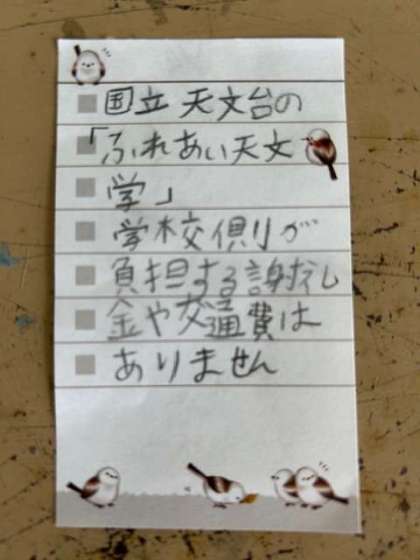 国立天文台の
「ふれあい天文
学」
学校側が
負担する謝礼
金や交通費は
ありません